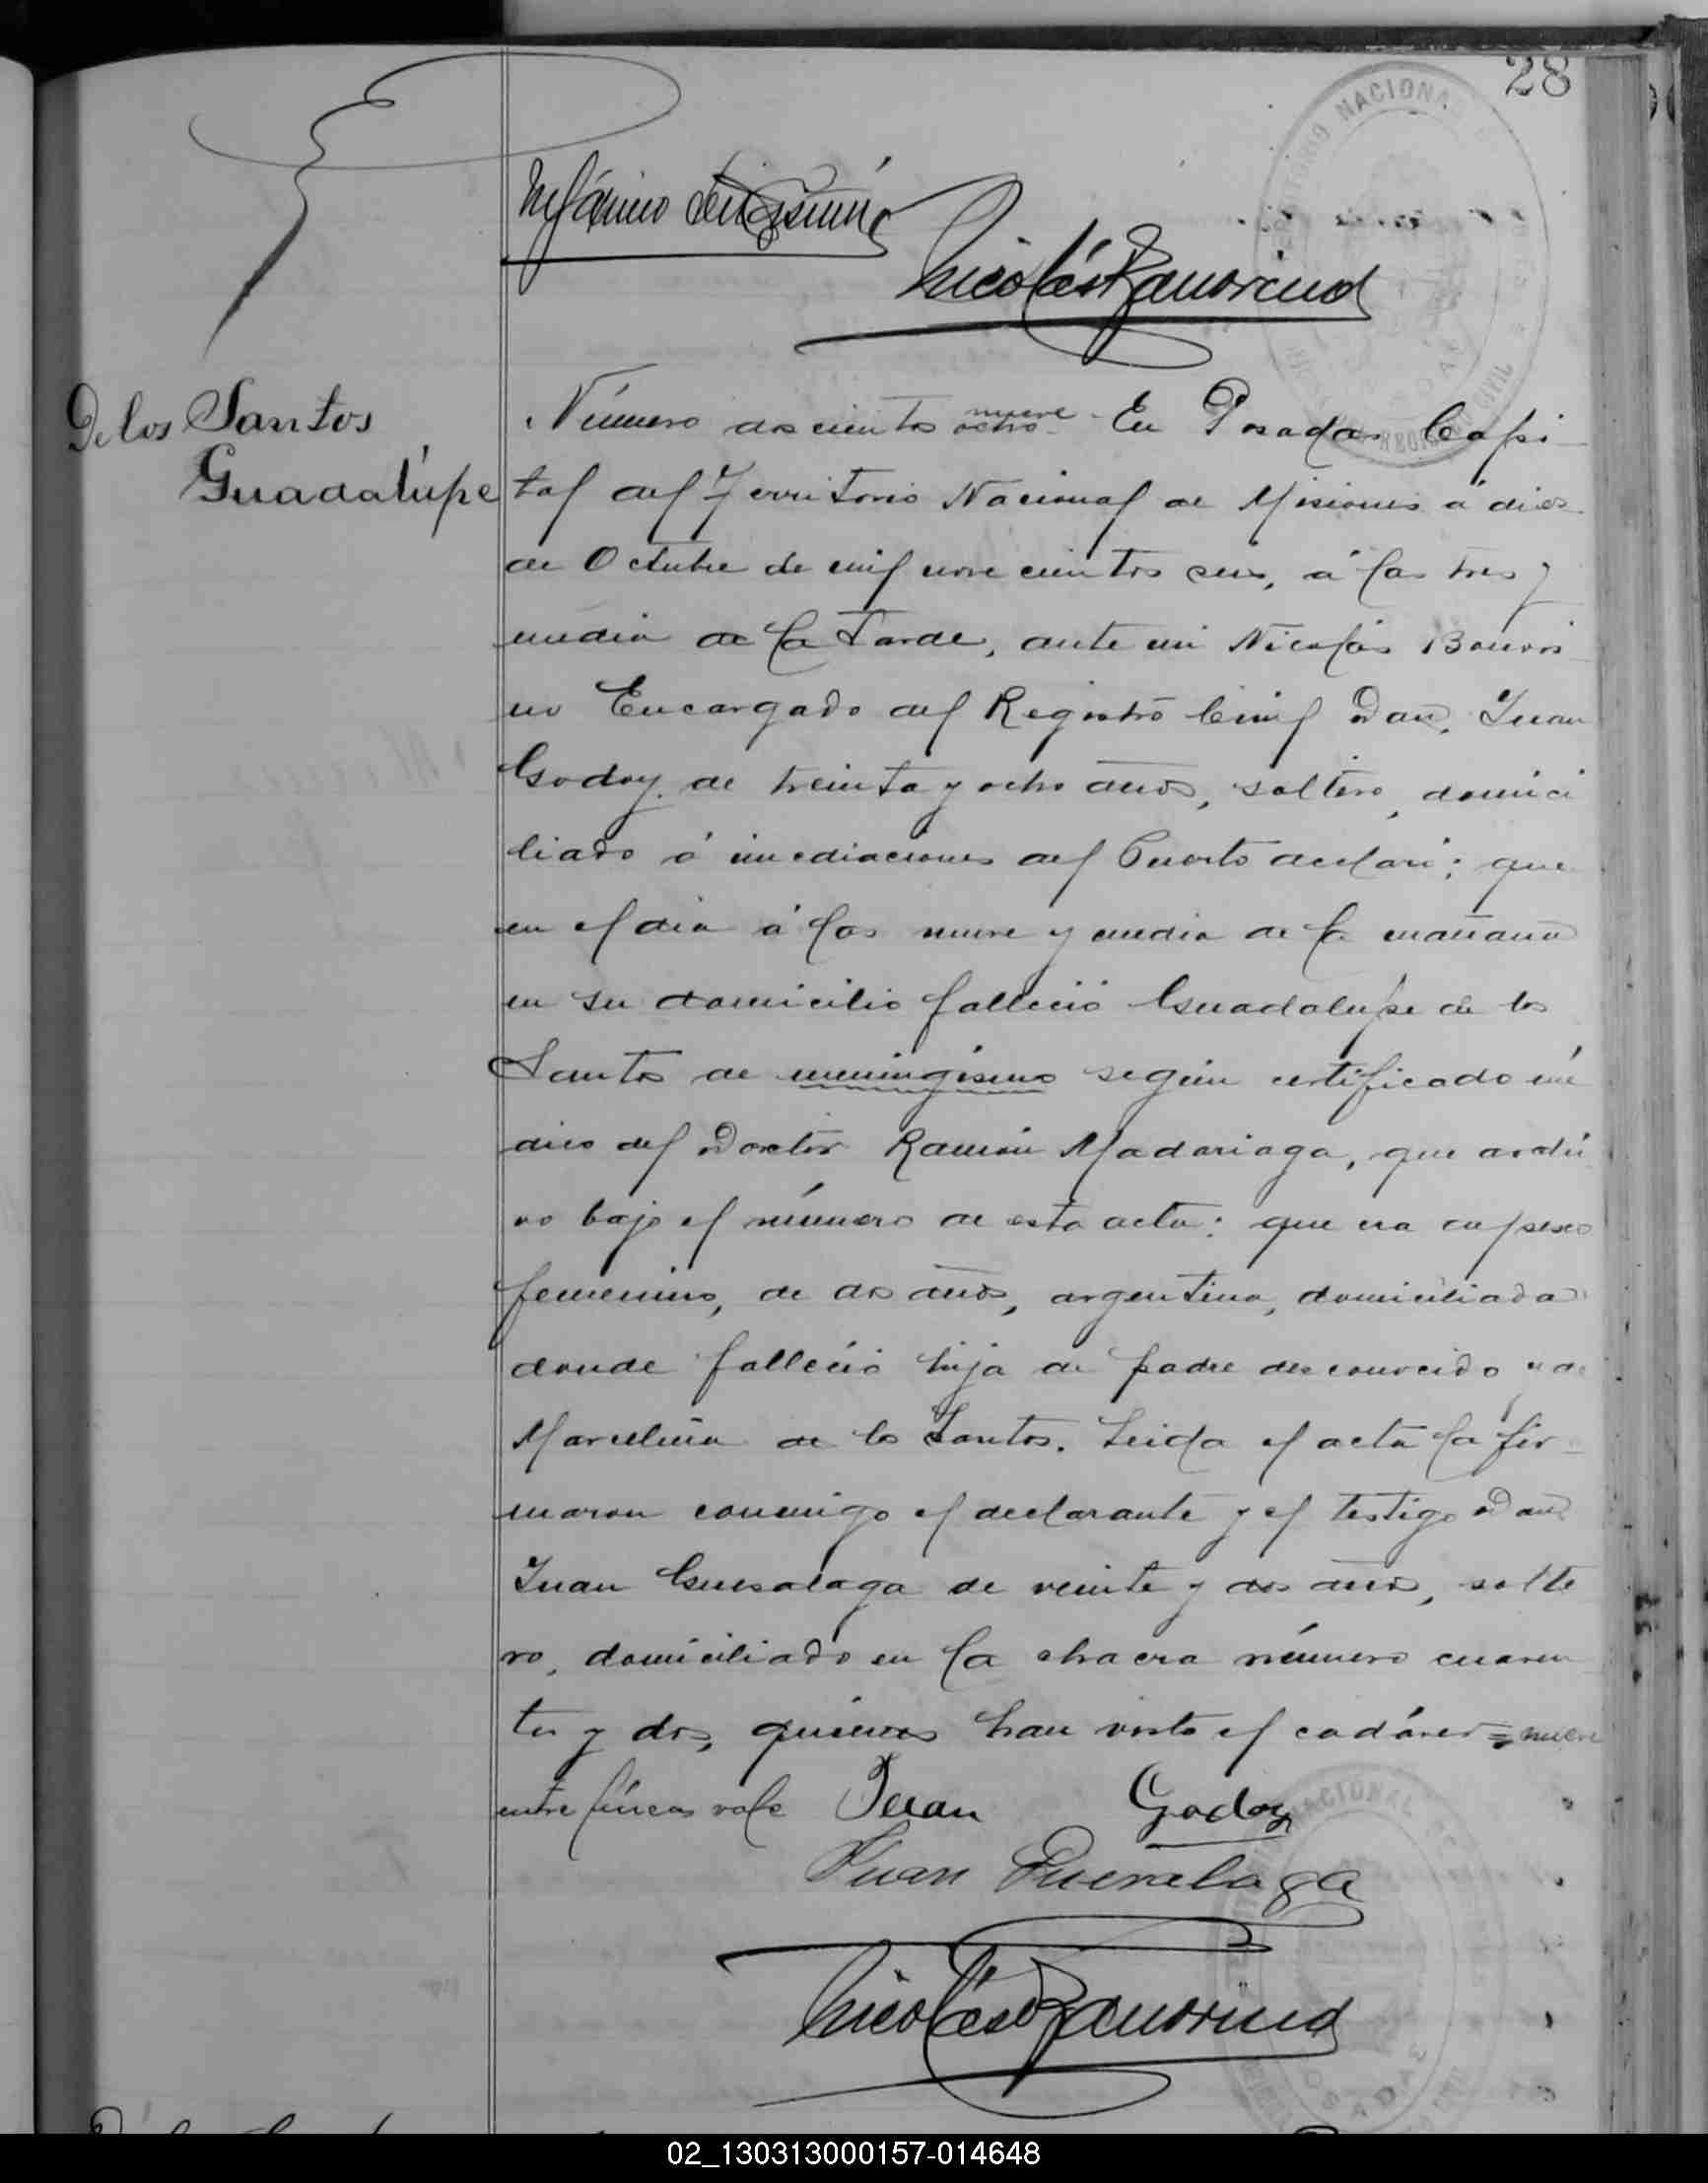 28
Nicolás Bauvrind
De los Santos
Guadalupe
Número doscientos ocho nueve. En Posadas Capi
tal del Territorio Nacional de Misiones á dies
de Octubre de mil novecientos seis, á las tres y
media de la tarde, ante mi Nicolás Bouvri
no Encargado del Registro Civil Don Juan
Godoy de treinta y ocho años, soltero, domici
liado á inmediaciones del Puerto declaró; que
en el dia á las nueve y media de la mañana
en su domicilio falleció Guadalupe de los
Santos de meningismo según certificado mé
dico del Doctor Ramón Madariaga, que archi
vo bajo el número de esta acta: que era del sexo
femenino, de dos años, argentina, domiciliada
donde falleció hija de padre desconocido y de
Marcelina de los Santos. Leida el acta la fir-
maron conmigo el declarante y el testigo Don
Juan Guesalaga de veinte y dos años, solte
ro, domiciliado en la chacra número cuaren
ta y dos, quienes han visto el cadáver = nueve
entre líneas vale Juan Godoy
Juan Guesalaga
Nicolás Bauvrind
02_130313000157-014648